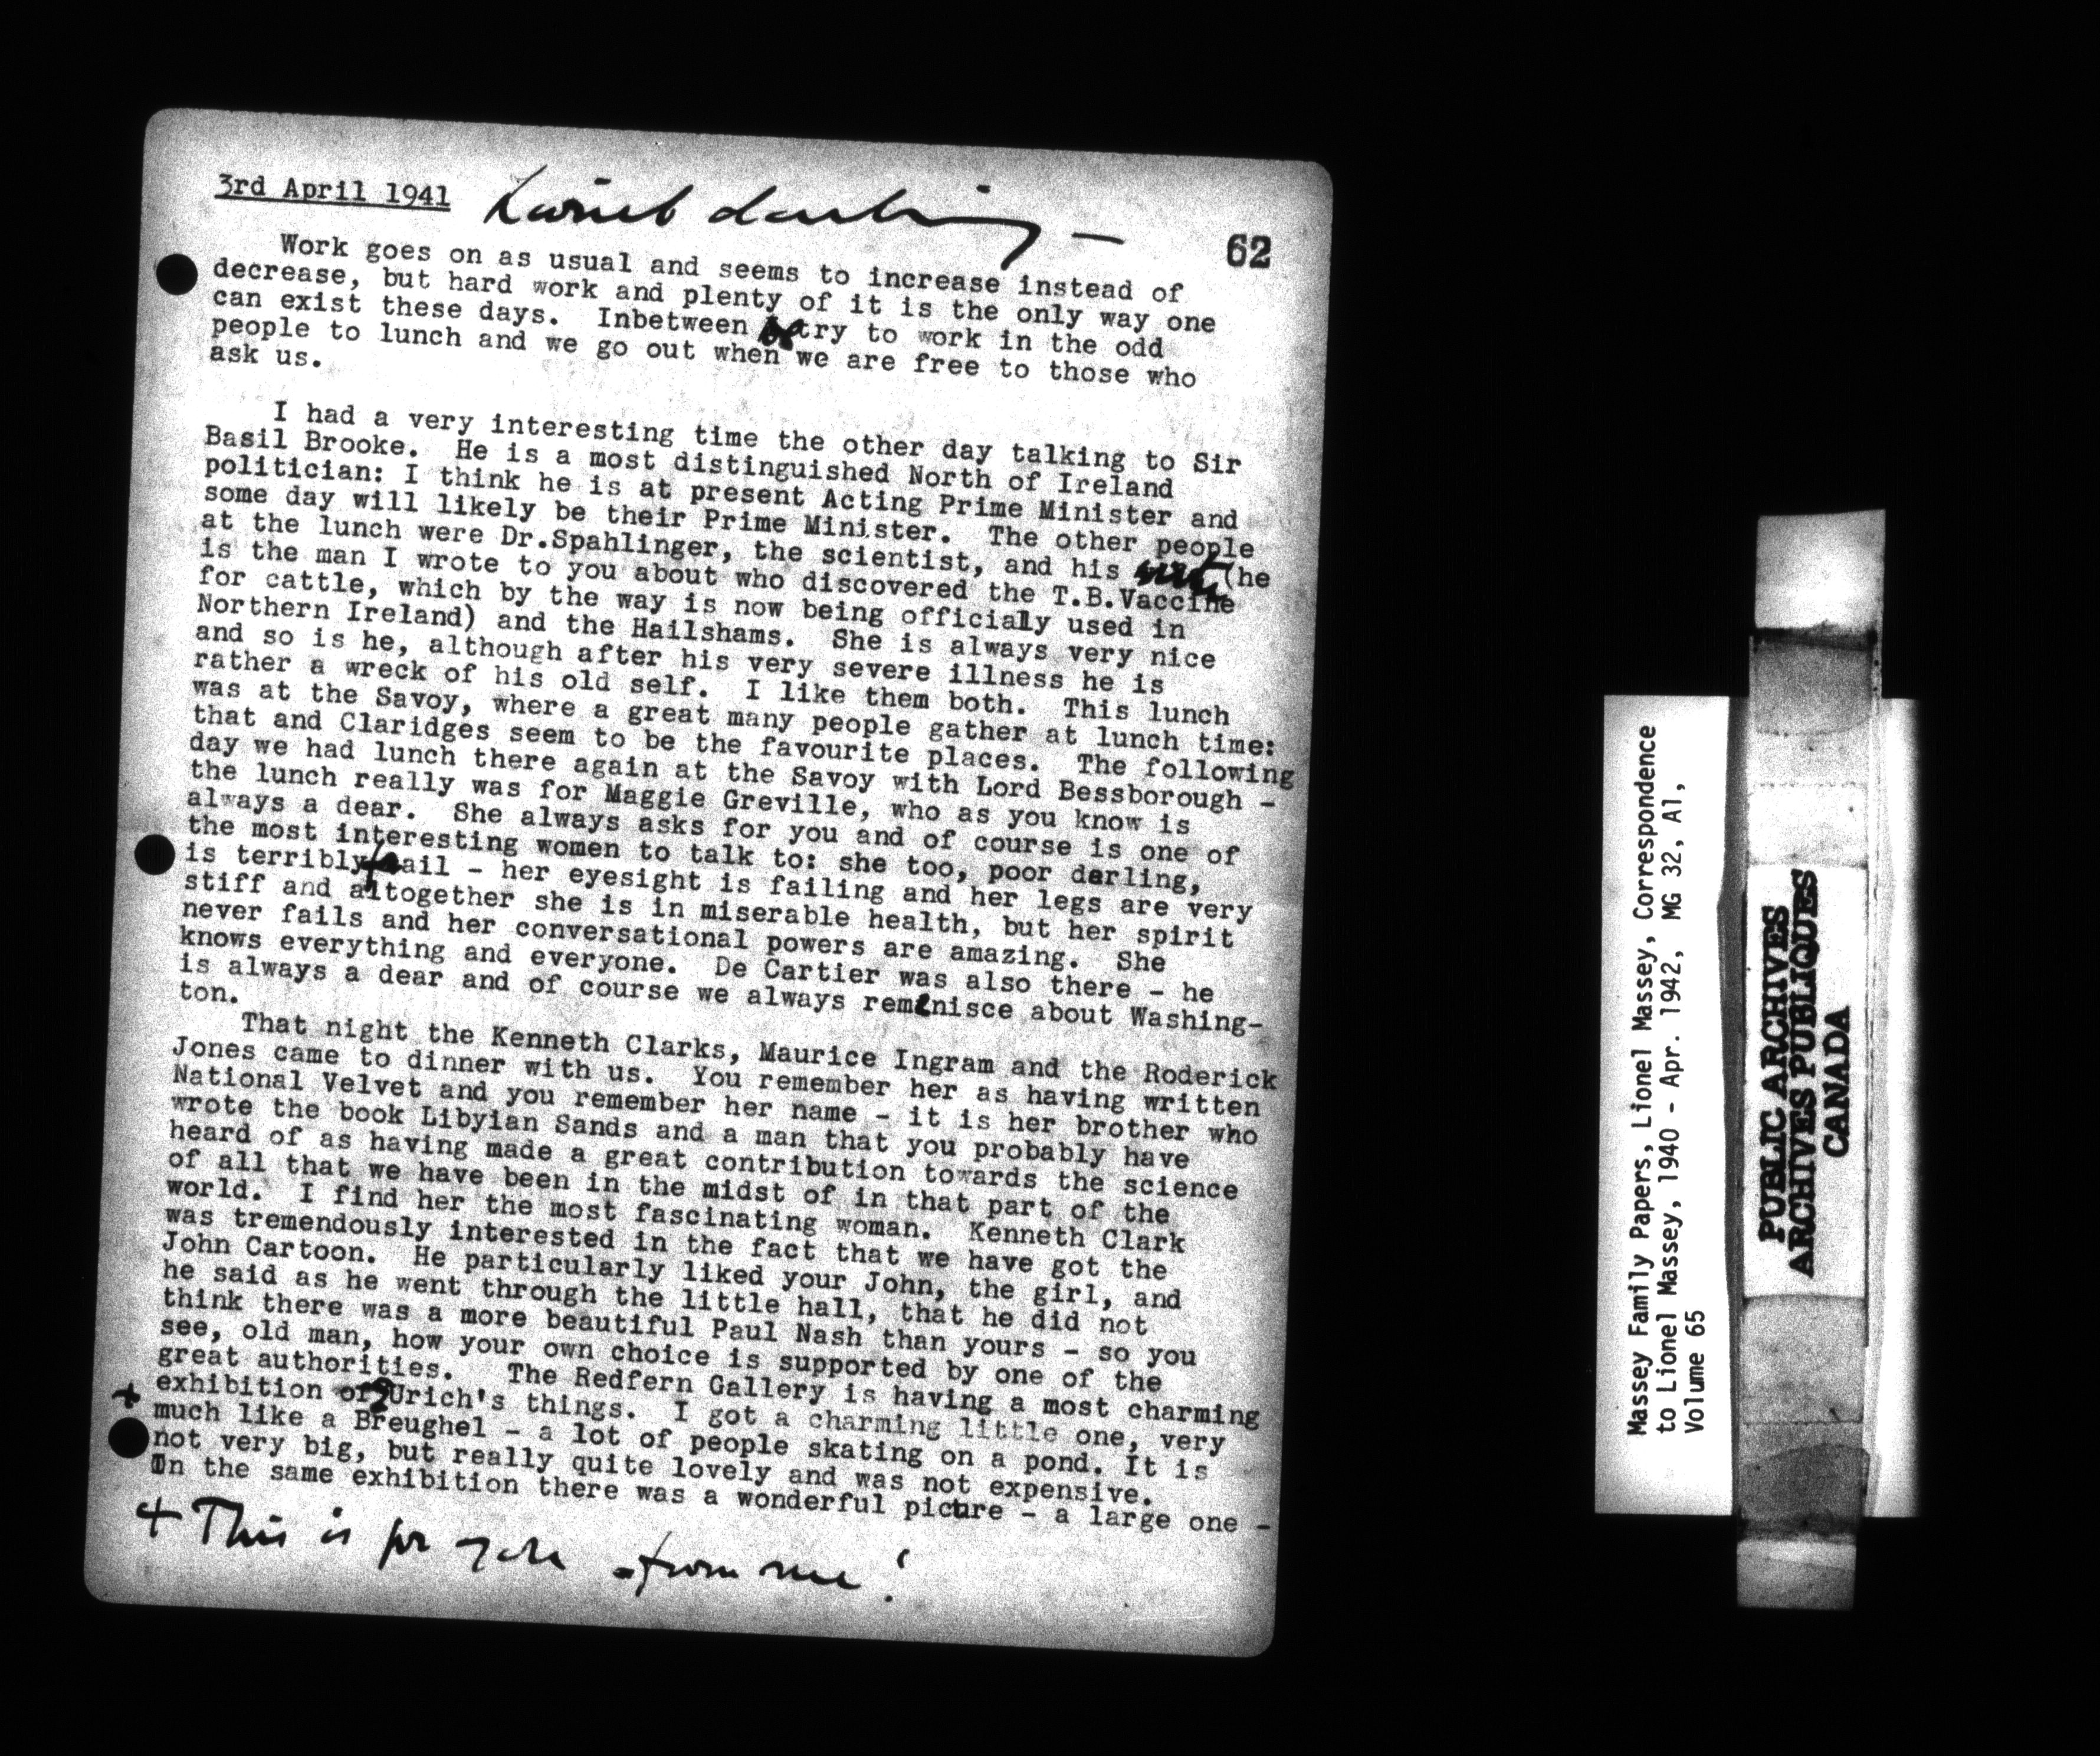 3rd April 1941 Lionel darling —
62
Work goes on as usual and seems to increase instead of
decrease, but hard work and plenty of it is the only way one
can exist these days. Inbetween we try to work in the odd
people to lunch and we go out when we are free to those who
ask us.
I had a very interesting time the other day talking to Sir
Basil Brooke. He is a most distinguished North of Ireland
politician: I think he is at present Acting Prime Minister and
some day will likely be their Prime Minister. The other people
at the lunch were Dr.Spahlinger, the scientist, and his (he
is the man I wrote to you about who discovered the T.B.Vaccine
for cattle, which by the way is now being officially used in
Northern Ireland) and the Hailshams. She is always very nice
and so is he, although after his very severe illness he is
rather a wreck of his old self. I like them both. This lunch
was at the Savoy, where a great many people gather at lunch time:
that and Claridges seem to be the favourite places. The following
day we had lunch there again at the Savoy with Lord Bessborough -
the lunch really was for Maggie Greville, who as you know is
always a dear. She always asks for you and of course is one of
the most interesting women to talk to: she too, poor darling,
is terribly frail - her eyesight is failing and her legs are very
stiff and altogether she is in miserable health, but her spirit
never fails and her conversational powers are amazing. She
knows everything and everyone. De Cartier was also there - he
is always a dear and of course we always reminisce about Washing-
ton.
That night the Kenneth Clarks, Maurice Ingram and the Roderick
Jones came to dinner with us. You remember her as having written
National Velvet and you remember her name - it is her brother who
wrote the book Libyian Sands and a man that you probably have
heard of as having made a great contribution towards the science
of all that we have been in the midst of in that part of the
world. I find her the most fascinating woman. Kenneth Clark
was tremendously interested in the fact that we have got the
John Cartoon. He particularly liked your John, the girl, and
he said as he went through the little hall, that he did not
think there was a more beautiful Paul Nash than yours - so you
see, old man, how your own choice is supported by one of the
great authorities. The Redfern Gallery is having a most charming
+ exhibition of ? Urich's things. I got a charming little one, very
much like a Breughel - a lot of people skating on a pond. It is
not very big, but really quite lovely and was not expensive.
In the same exhibition there was a wonderful picture - a large one -
+ This is for you - from me!
Massey Family Papers, Lionel Massey, Correspondence
to Lionel Massey, 1940 - Apr. 1942, MG 32, A1,
Volume 65
PUBLIC ARCHIVES
ARCHIVES PUBLIQUES
CANADA